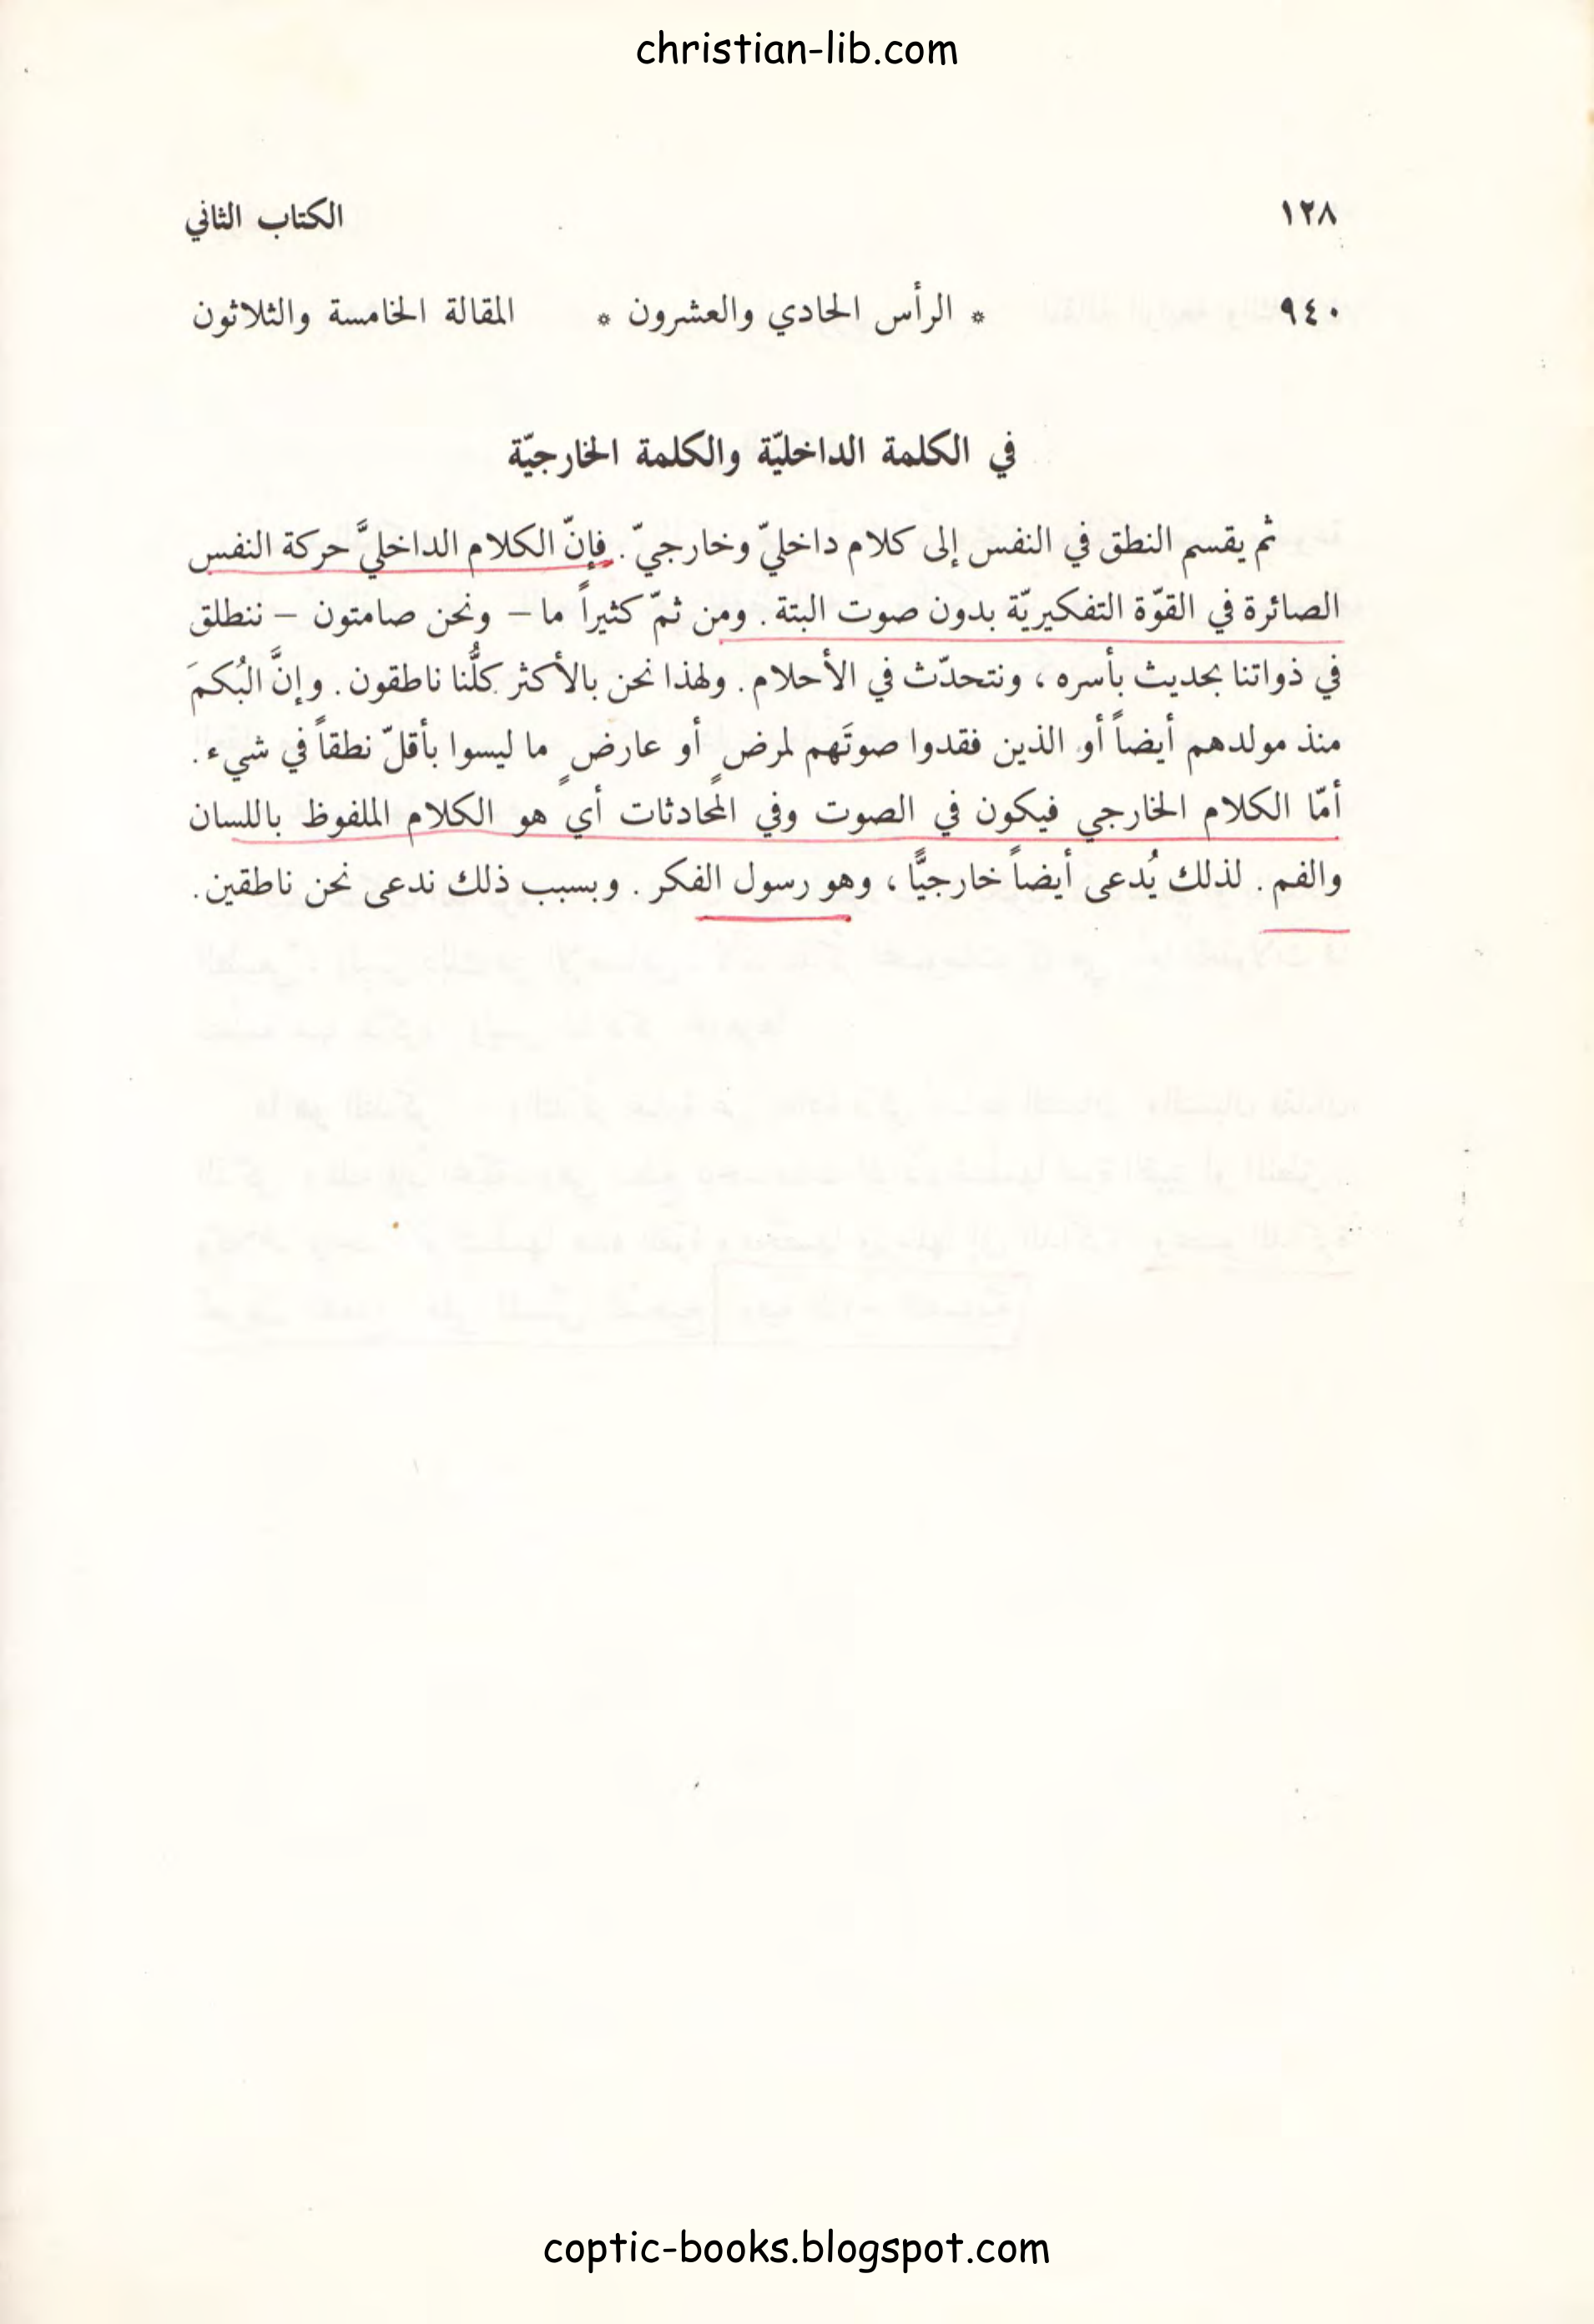 christian-lib.com
١٢٨ الكتاب الثاني
٩٤٠ * الرأس الحادي والعشرون * المقالة الخامسة والثلاثون
في الكلمة الداخليّة والكلمة الخارجيّة
ثم يقسم النطق في النفس إلى كلام داخليّ وخارجيّ . فإنّ الكلام الداخليَّ حركة النفس
الصائرة في القوّة التفكيريّة بدون صوت البتة . ومن ثمّ كثيراً ما – ونحن صامتون – ننطلق
في ذواتنا بحديث بأسره ، ونتحدّث في الأحلام . ولهذا نحن بالأكثر كلُّنا ناطقون . وإنَّ البُكمَ
منذ مولدهم أيضاً أو الذين فقدوا صوتَهم لمرضٍ أو عارضٍ ما ليسوا بأقلّ نطقاً في شيء .
أمّا الكلام الخارجي فيكون في الصوت وفي المحادثات أي هو الكلام الملفوظ باللسان
والفم . لذلك يُدعى أيضاً خارجيًّا ، وهو رسول الفكر . وبسبب ذلك ندعى نحن ناطقين .
coptic-books.blogspot.com